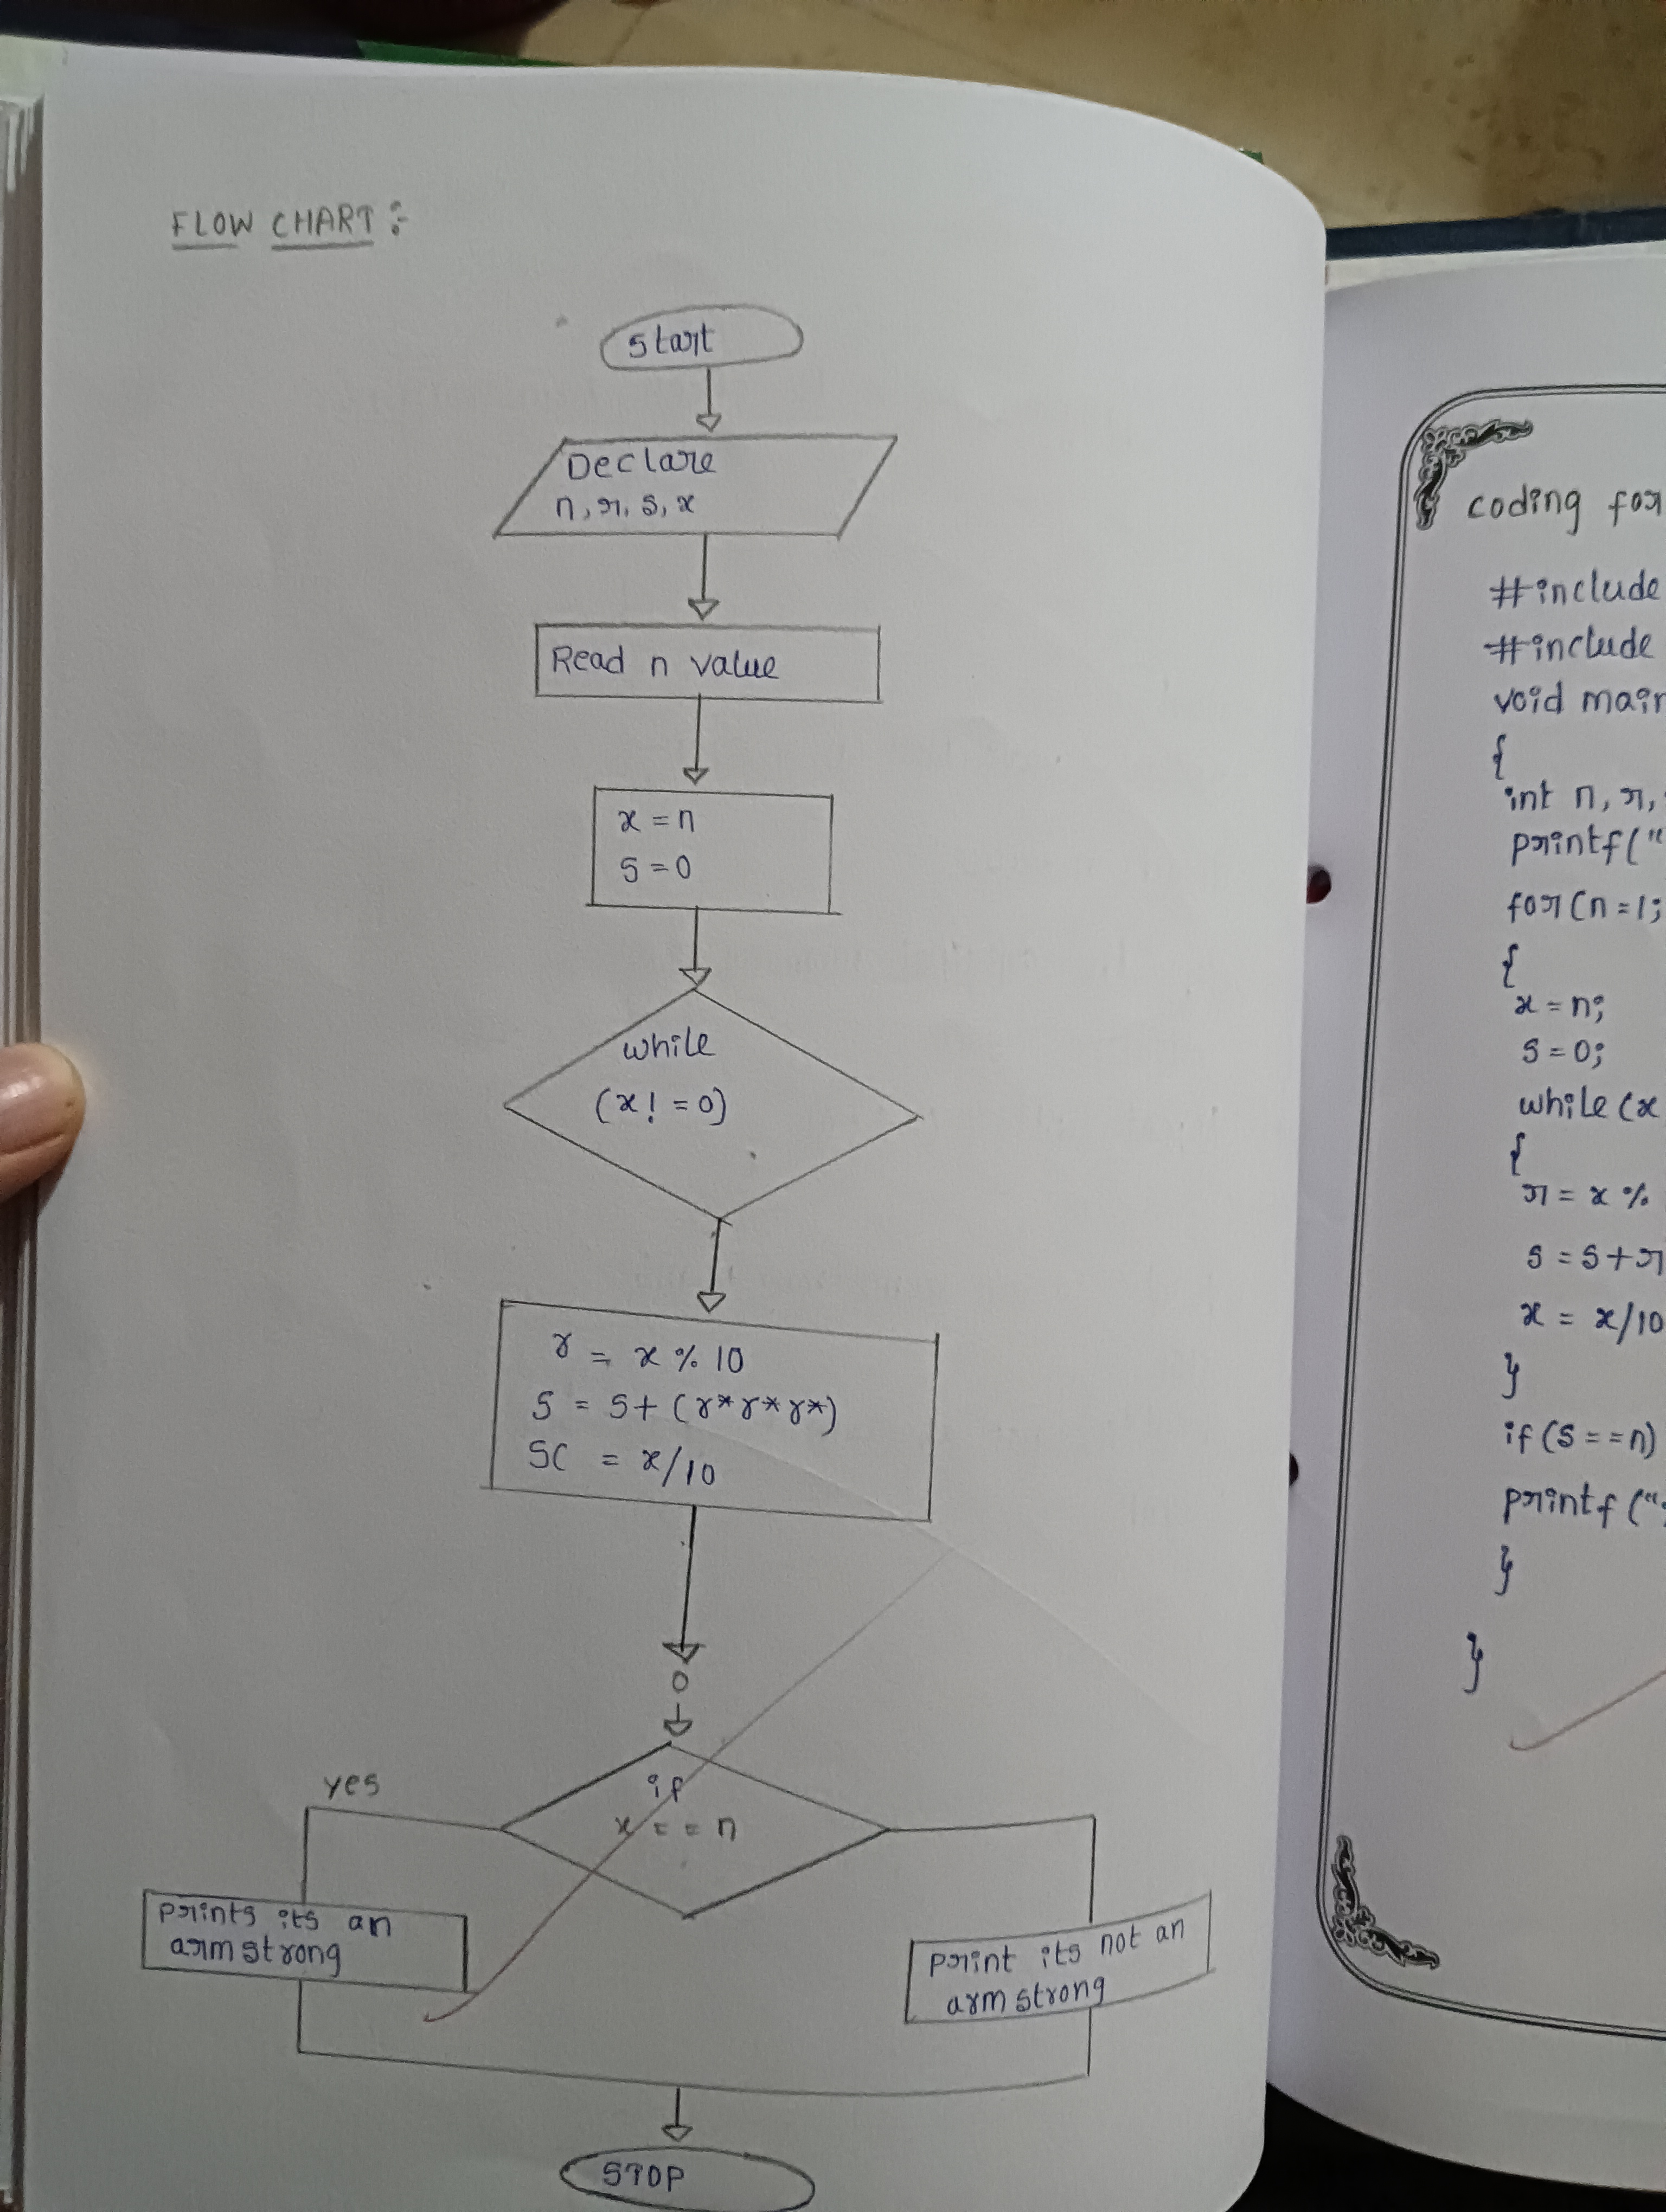 FLOW CHART :-
Start
Declare
n, r, s, x
Read n value
x = n
S = 0
while
(x! = 0)
r = x % 10
S = S + (r*r*r*)
SC = x/10
0
if
x = = n
yes
prints its an
armstrong
print its not an
armstrong
STOP
coding for
#include
#include
void main
{
int n, r,
printf("
for(n=1;
{
x = n;
S = 0;
while (x
{
r = x %
S = S + r
x = x/10
}
if (S = = n)
printf ("
}
}